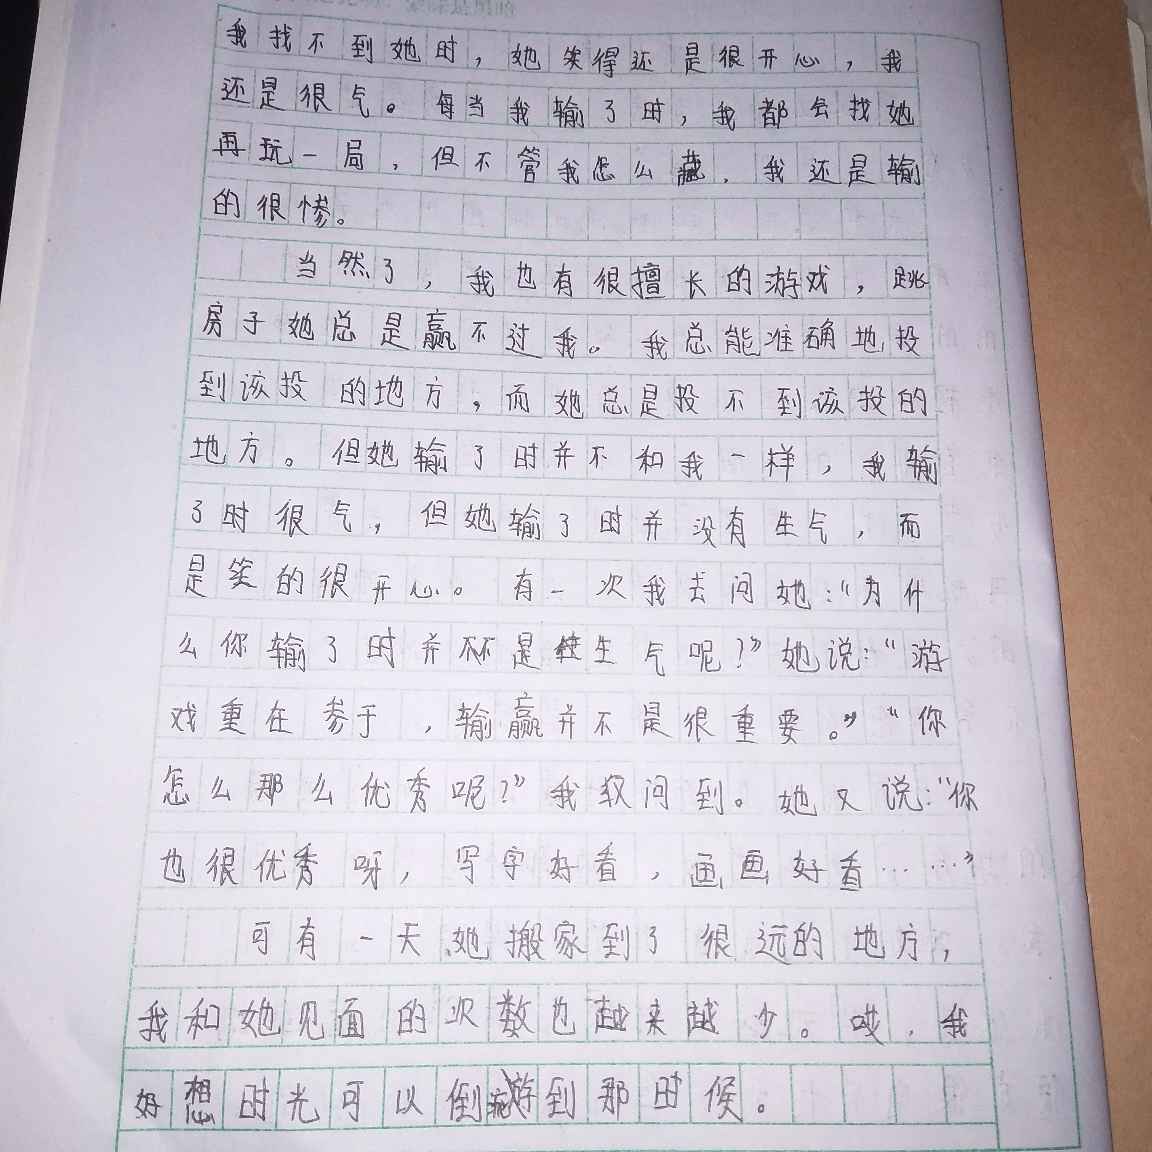 我找不到她时，她笑得还是很开心，我
还是很气。每当我输了时，我都会找她
再玩一局，但不管我怎么藏，我还是输
的很惨。
当然了，我也有很擅长的游戏，跳
房子她总是赢不过我。我总能准确地投
到该投的地方，而她总是投不到该投的
地方。但她输了时并不和我一样，我输
了时很气，但她输了时并没有生气，而
是笑的很开心。有一次我去问她：“为什
么你输了时并不是生气呢？”她说：“游
戏重在参于，输赢并不是很重要。”“你
怎么那么优秀呢？”我又问到。她又说：“你
也很优秀呀，写字好看，画画好看……”
可有一天她搬家到了很远的地方，
我和她见面的次数也越来越少。哎，我
好想时光可以倒游到那时候。